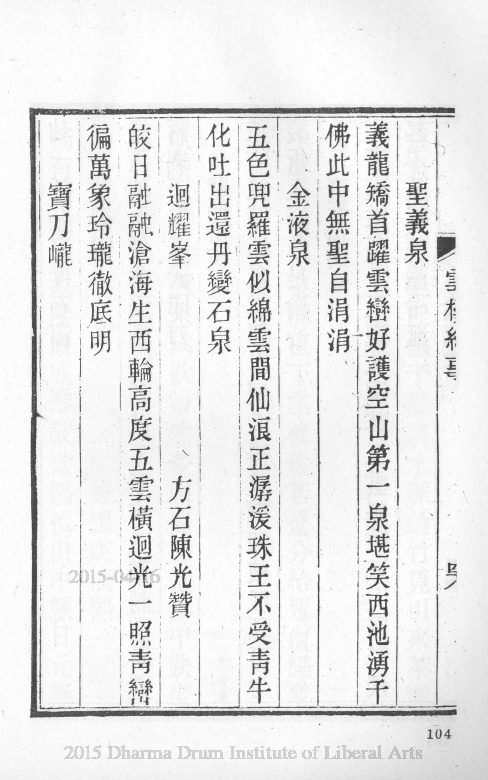 雲棲紀事
聖義泉
義龍矯首躍雲巒好護空山第一泉堪笑西池湧千
佛此中無聖自涓涓
金液泉
五色兜羅雲似綿雲間仙浪正潺湲珠王不受靑牛
化吐出還丹變石泉
迴耀峯 方石陳光贊
皎日融融滄海生西輪高度五雲橫迴光一照靑巒
徧萬象玲瓏徹底明
寶刀巄
104
2015-04-16
2015 Dharma Drum Institute of Liberal Arts